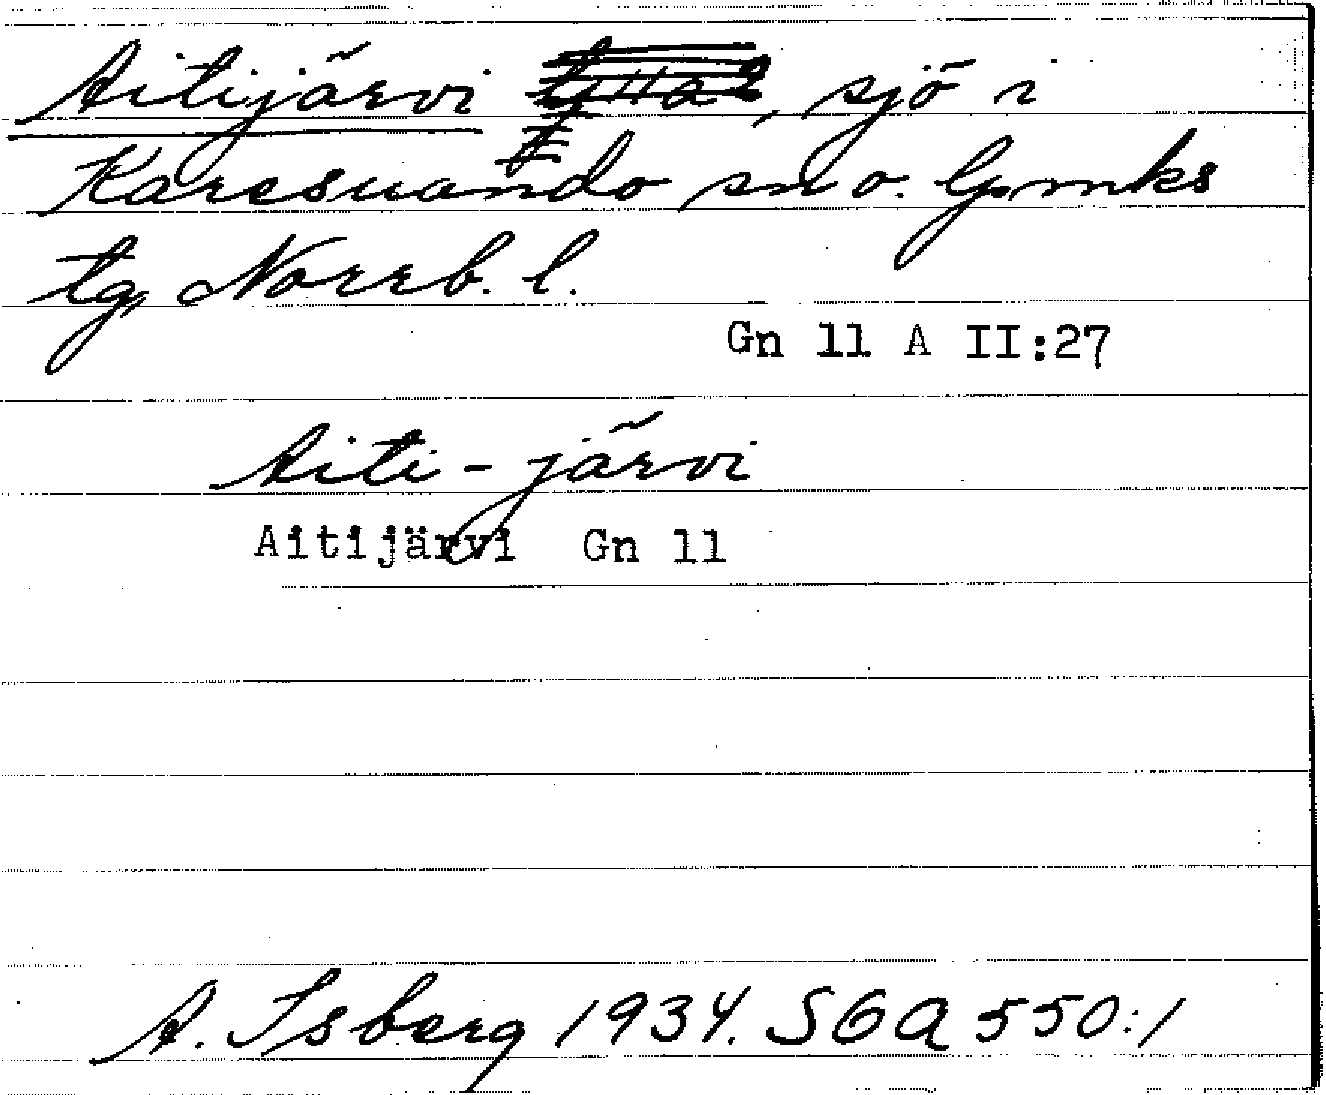 Aitijärvi, sjö i
Karesuando sn o. lpmks
tg, Norrb. l.
Gn 11 A II:27
Aiti - järvi
Aitijärvi Gn 11
A. Isberg 1934. SGA 550:1